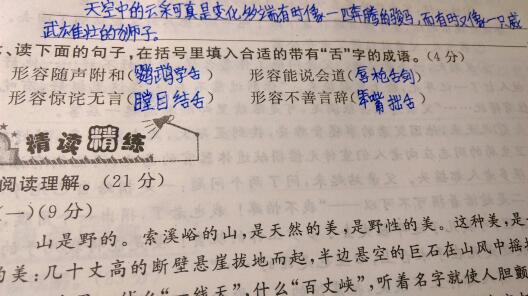 天空中的云彩可真是变化多端有时像一匹奔腾的骏马,而有时又像一只威
武雄壮的狮子。
、读下面的句子,在括号里填入合适的带有“舌”字的成语。(4分)
形容随声附和(鹦鹉学舌) 形容能说会道(唇枪舌剑)
形容惊诧无言(瞠目结舌) 形容不善言辞(笨嘴拙舌)
精读精练
阅读理解。(21分)
(一)(9分)
山是野的。索溪峪的山,是天然的美,是野性的美。这种美,是一
的美:几十丈高的断壁悬崖拔地而起,半边悬空的巨石在山风中摇
什么“一线天”,什么“百丈峡”,听着名字就使人胆颤